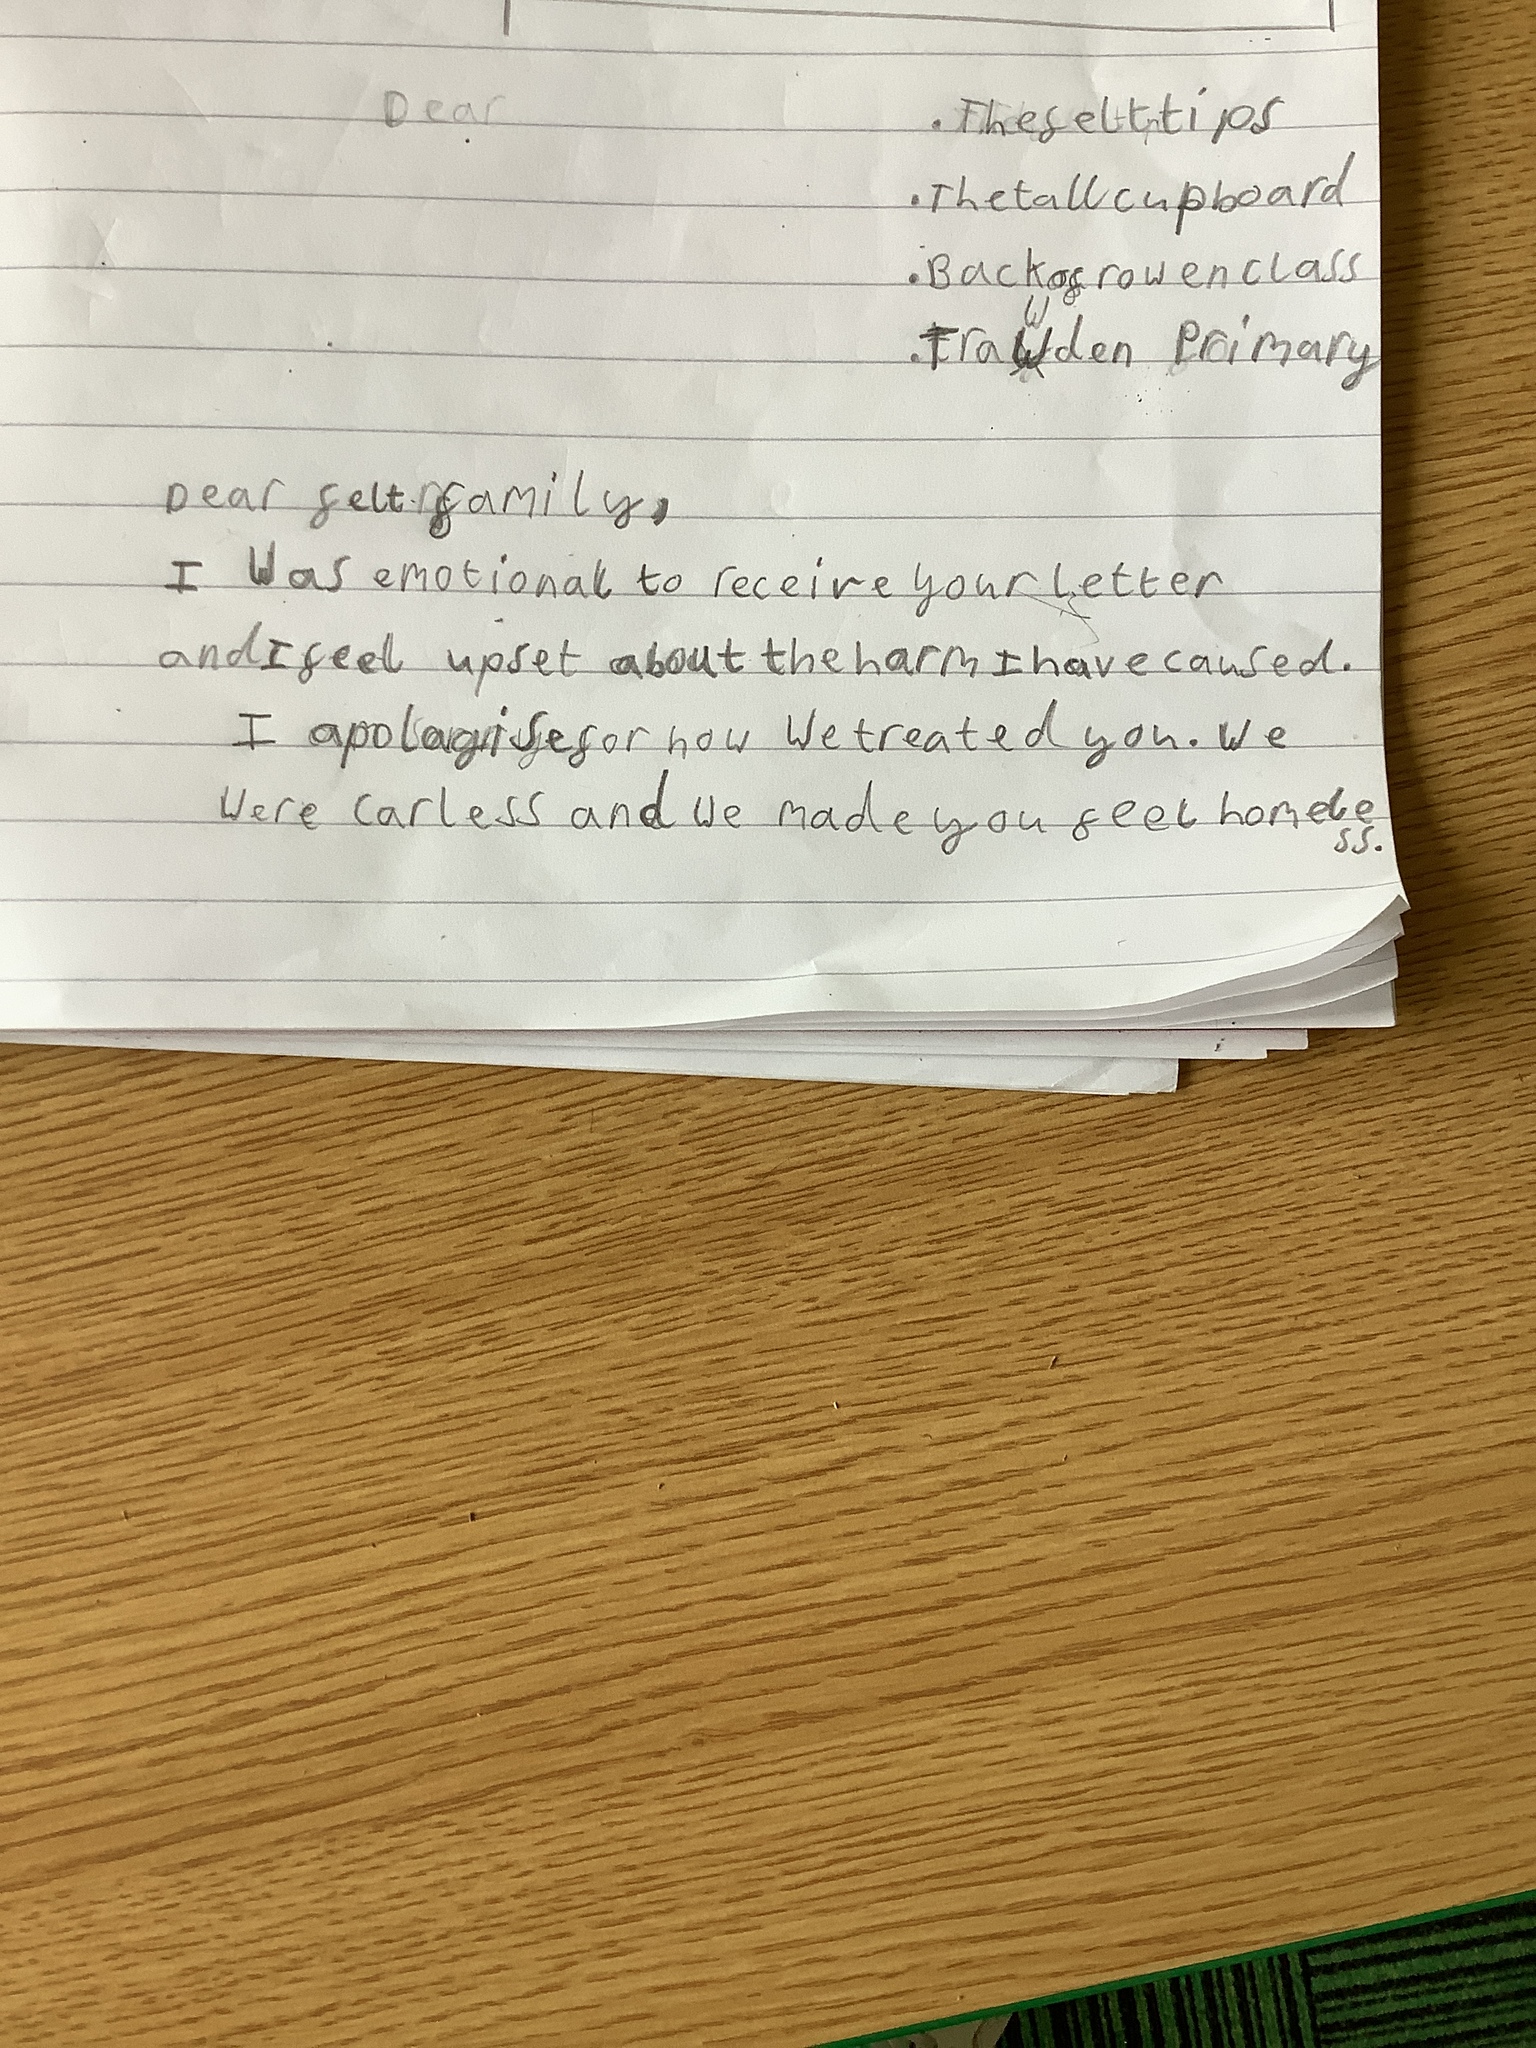 Dear
. The felt tips
. The tall cupboard
. Back of rowen class
. Trawden Primary
Dear felt family,
I was emotional to receive your letter
and I feel upset about the harm I have caused.
I apolagise for how we treated you. We
were carless and we made you feel homele
ss.